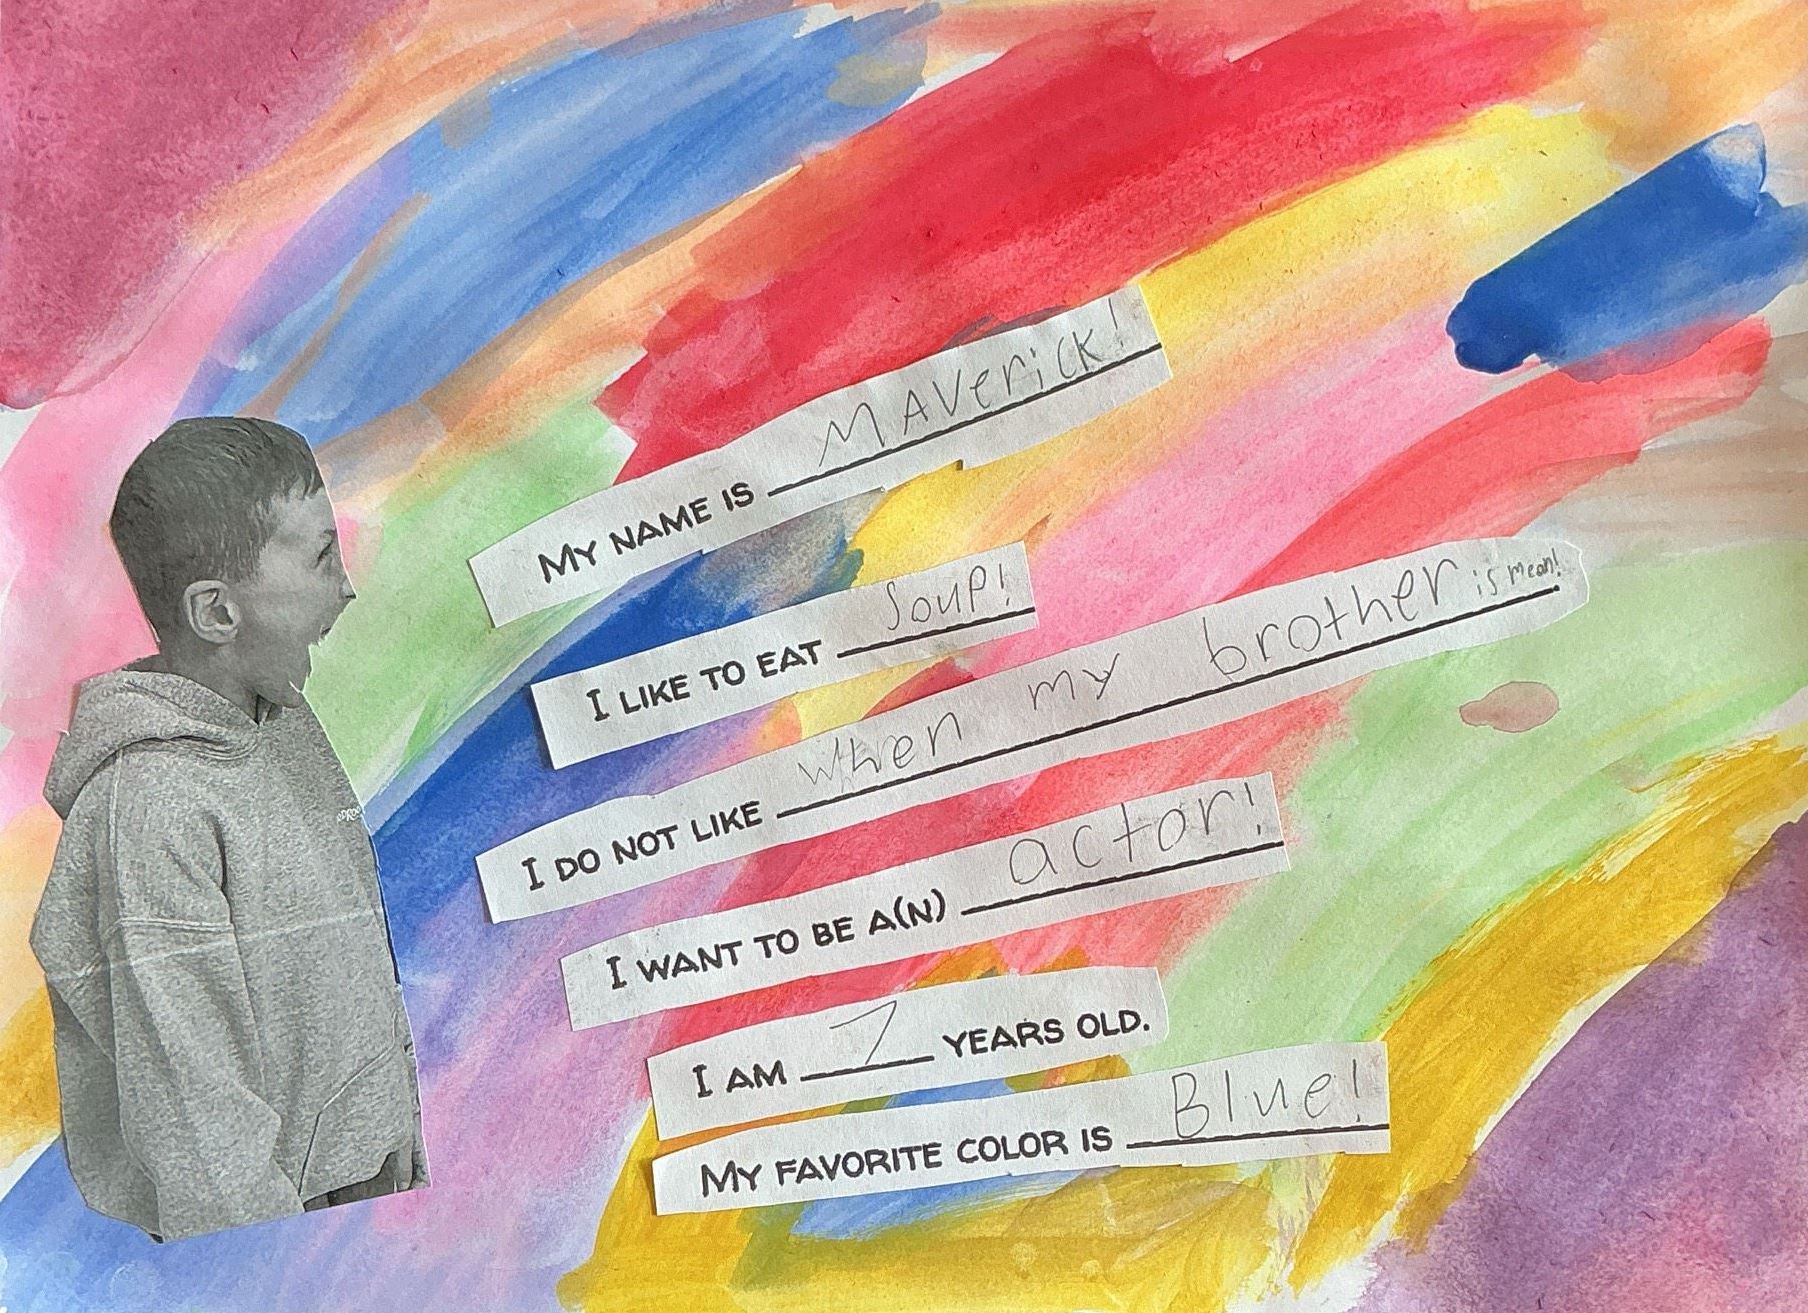 MY NAME IS MAVerick!
I LIKE TO EAT Soup!
I DO NOT LIKE when my brother is mean!
I WANT TO BE A(N) actor!
I AM 7 YEARS OLD.
MY FAVORITE COLOR IS Blue!